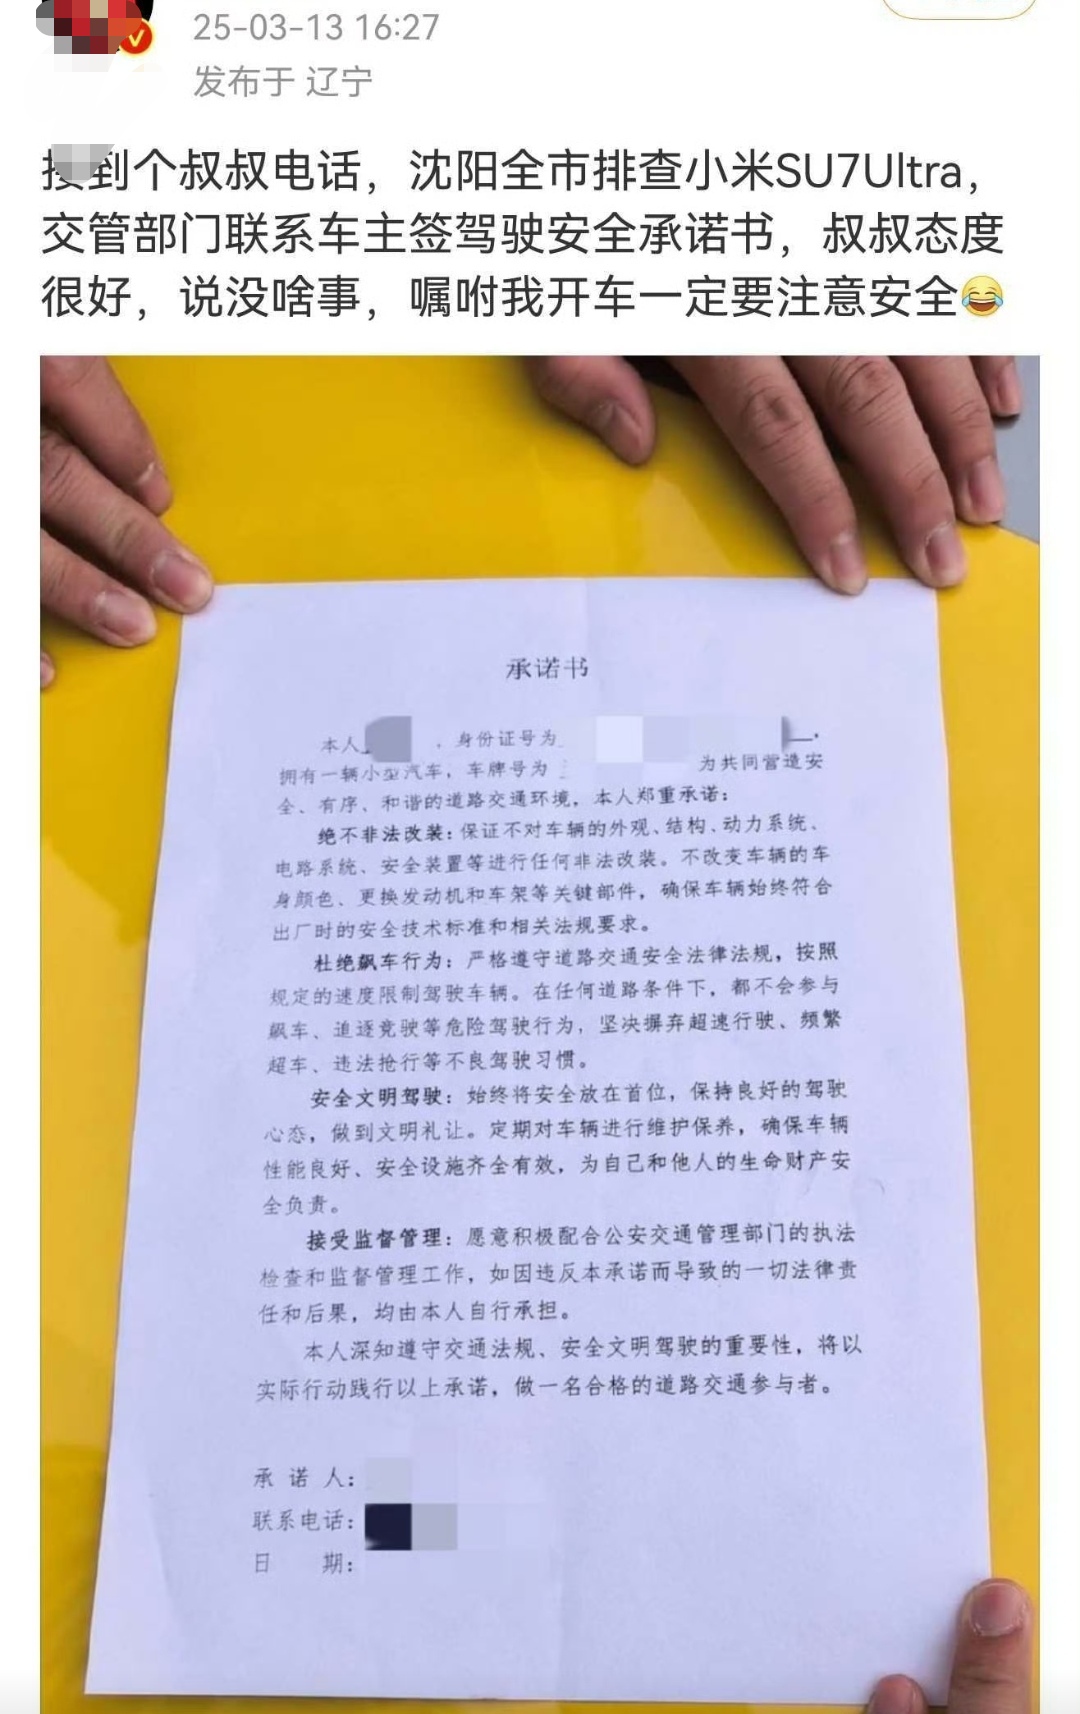 25-03-13 16:27
发布于 辽宁
接到个叔叔电话，沈阳全市排查小米SU7Ultra，
交管部门联系车主签驾驶安全承诺书，叔叔态度
很好，说没啥事，嘱咐我开车一定要注意安全😂
承诺书
本人 ，身份证号为
拥有一辆小型汽车，车牌号为 为共同营造安
全、有序、和谐的道路交通环境，本人郑重承诺：
绝不非法改装：保证不对车辆的外观、结构、动力系统、
电路系统、安全装置等进行任何非法改装。不改变车辆的车
身颜色、更换发动机和车架等关键部件，确保车辆始终符合
出厂时的安全技术标准和相关法规要求。
杜绝飙车行为：严格遵守道路交通安全法律法规，按照
规定的速度限制驾驶车辆。在任何道路条件下，都不会参与
飙车、追逐竞驶等危险驾驶行为，坚决摒弃超速行驶、频繁
超车、违法抢行等不良驾驶习惯。
安全文明驾驶：始终将安全放在首位，保持良好的驾驶
心态，做到文明礼让。定期对车辆进行维护保养，确保车辆
性能良好、安全设施齐全有效，为自己和他人的生命财产安
全负责。
接受监督管理：愿意积极配合公安交通管理部门的执法
检查和监督管理工作，如因违反本承诺而导致的一切法律责
任和后果，均由本人自行承担。
本人深知遵守交通法规、安全文明驾驶的重要性，将以
实际行动践行以上承诺，做一名合格的道路交通参与者。
承 诺 人：
联系电话：
日 期：